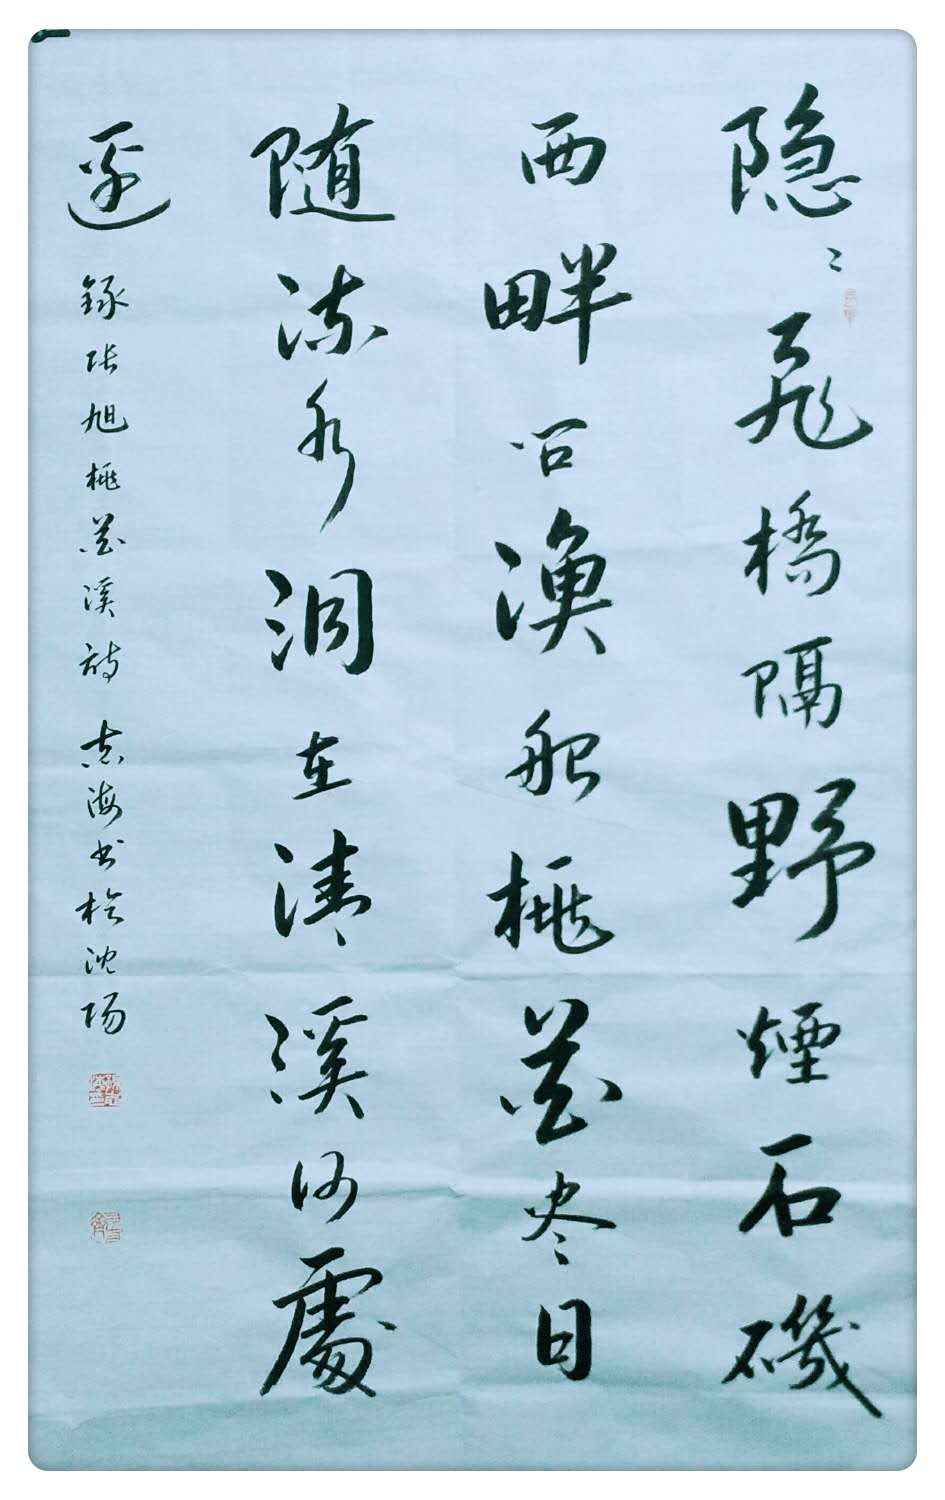 隐〻飛橋隔野煙石磯
西畔问漁船桃花尽日
随流水洞在清溪何處
边 録张旭桃花溪诗 志海书於沈阳